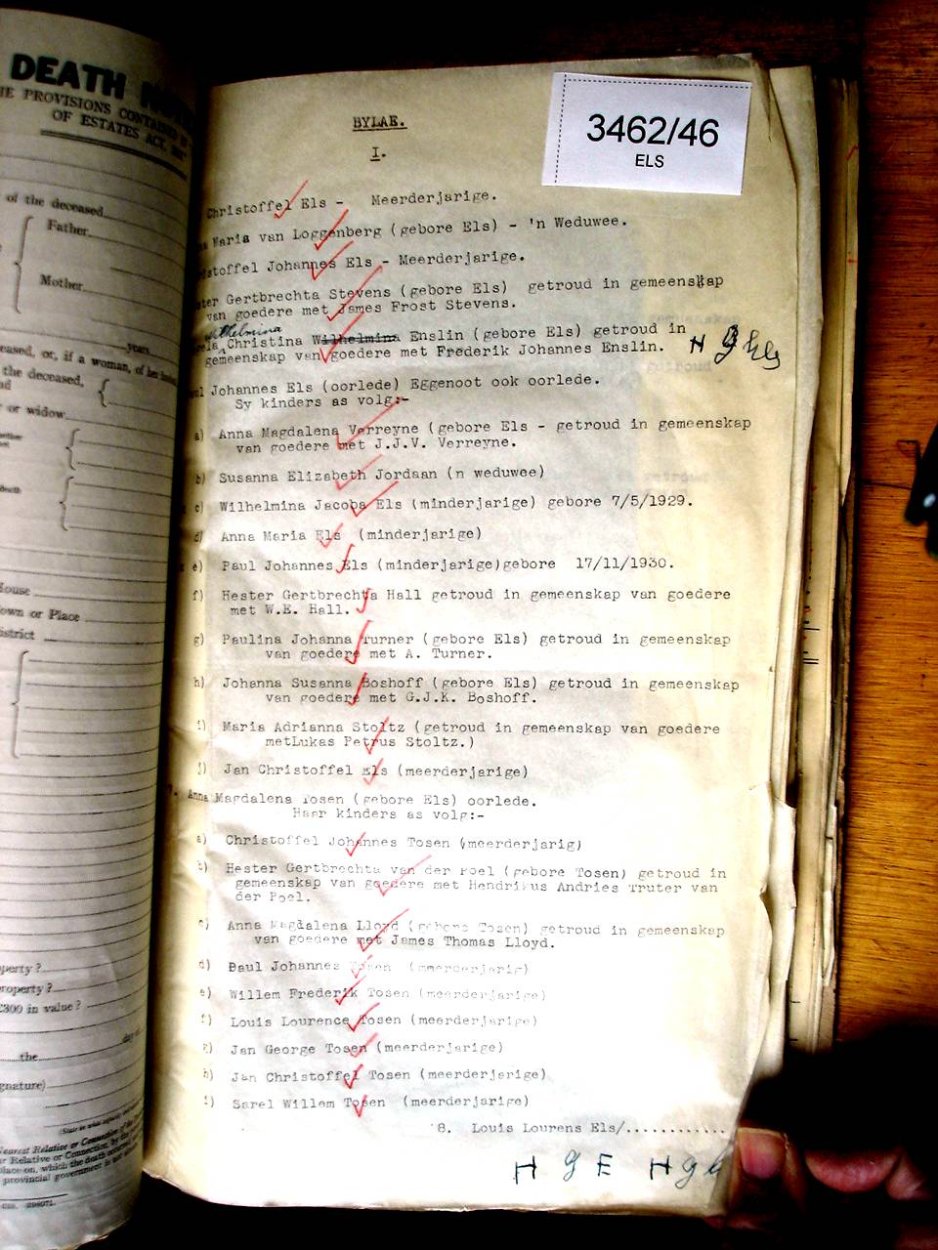 DEATH
THE PROVISIONS CONTAINED IN
OF ESTATES ACT,
of the deceased
Father
Mother
years
eased, or, if a woman, of her
the deceased,
or widow
House
own or Place
istrict
perty?
roperty?
£300 in value?
the
day
gnature)
earest Relative or Connection
or Relative or Connection, by the
place on, which the death
provincial government is not
3462/46
ELS
BYLAE.
I.
Christoffel Els - Meerderjarige.
Maria van Loggenberg (gebore Els) - 'n Weduwee.
stoffel Johannes Els - Meerderjarige.
ter Gertbrechta Stevens (gebore Els) getroud in gemeenskap
van goedere met James Frost Stevens.
Wilhelmina
Christina Wilhelmina Enslin (gebore Els) getroud in
gemeenskap van goedere met Frederik Johannes Enslin.
Johannes Els (oorlede) Eggenoot ook oorlede.
Sy kinders as volg:-
a) Anna Magdalena Verreyne (gebore Els - getroud in gemeenskap
van goedere met J.J.V. Verreyne.
b) Susanna Elizabeth Jordaan (n weduwee)
c) Wilhelmina Jacoba Els (minderjarige) gebore 7/5/1929.
d) Anna Maria Els (minderjarige)
e) Paul Johannes Els (minderjarige)gebore 17/11/1930.
f) Hester Gertbrechta Hall getroud in gemeenskap van goedere
met W.E. Hall.
g) Paulina Johanna Turner (gebore Els) getroud in gemeenskap
van goedere met A. Turner.
h) Johanna Susanna Boshoff (gebore Els) getroud in gemeenskap
van goedere met G.J.K. Boshoff.
i) Maria Adrianna Stoltz (getroud in gemeenskap van goedere
metLukas Petrus Stoltz.)
j) Jan Christoffel Els (meerderjarige)
Anna Magdalena Tosen (gebore Els) oorlede.
Haar kinders as volg:-
a) Christoffel Johannes Tosen (meerderjarig)
b) Hester Gertbrechta van der Poel (gebore Tosen) getroud in
gemeenskap van goedere met Hendrikus Andries Truter van
der Poel.
c) Anna Magdalena Lloyd (gebore Tosen) getroud in gemeenskap
van goedere met James Thomas Lloyd.
d) Paul Johannes Tosen (meerderjarig)
e) Willem Frederik Tosen (meerderjarige)
f) Louis Lourence Tosen (meerderjarige)
g) Jan George Tosen (meerderjarige)
h) Jan Christoffel Tosen (meerderjarige)
i) Sarel Willem Tosen (meerderjarige)
8. Louis Lourens Els/............
H G E